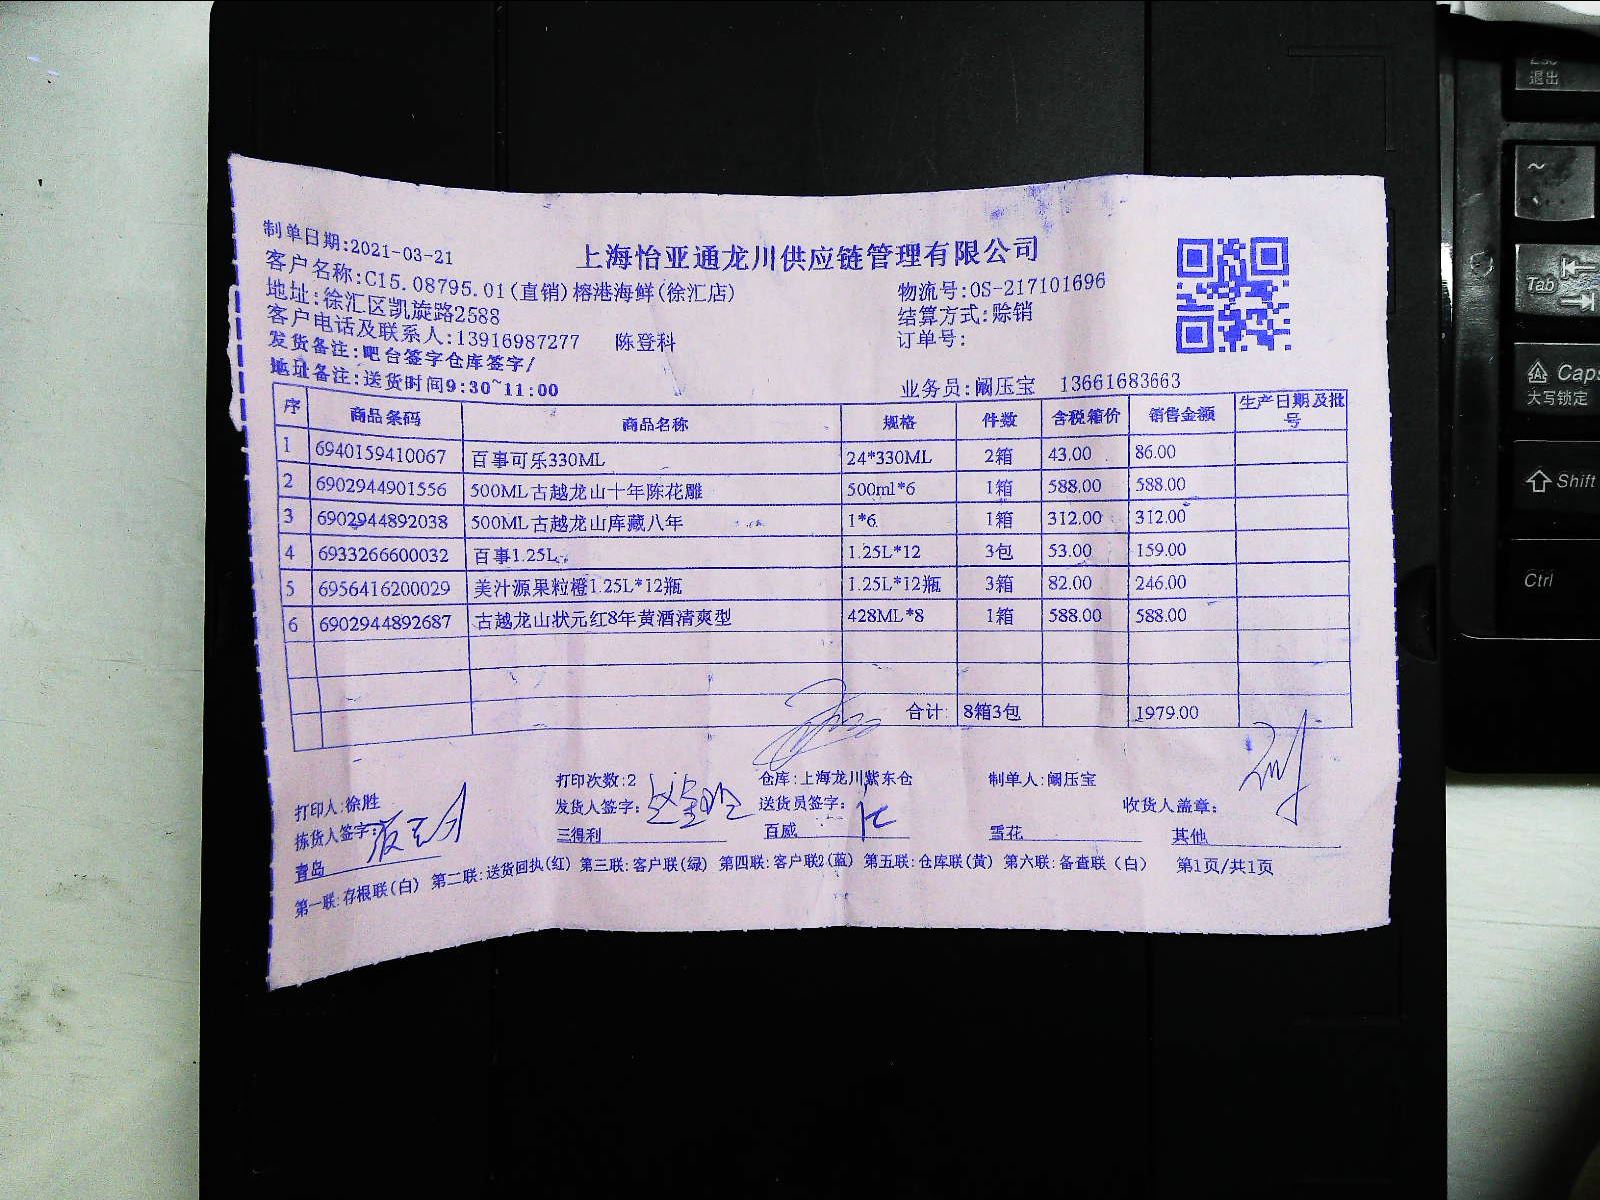 制单日期:2021-03-21
上海怡亚通龙川供应链管理有限公司
客户名称:C15.08795.01(直销)榕港海鲜(徐汇店)
物流号:OS-217101696
地址:徐汇区凯旋路2588
结算方式:赊销
客户电话及联系人:13916987277 陈登科
订单号:
发货备注:吧台签字仓库签字/
地址备注:送货时间9:30~11:00
业务员:阚压宝 13661683663
序 商品条码 商品名称 规格 件数 含税箱价 销售金额 生产日期及批号
1 6940159410067 百事可乐330ML 24*330ML 2箱 43.00 86.00
2 6902944901556 500ML古越龙山十年陈花雕 500ml*6 1箱 588.00 588.00
3 6902944892038 500ML古越龙山库藏八年 1*6 1箱 312.00 312.00
4 6933266600032 百事1.25L 1.25L*12 3包 53.00 159.00
5 6956416200029 美汁源果粒橙1.25L*12瓶 1.25L*12瓶 3箱 82.00 246.00
6 6902944892687 古越龙山状元红8年黄酒清爽型 428ML*8 1箱 588.00 588.00
合计: 8箱3包 1979.00
打印人:徐胜 打印次数:2 仓库:上海龙川紫东仓 制单人:阚压宝
拣货人签字: 发货人签字: 送货员签字: 收货人盖章:
青岛 三得利 百威 雪花 其他
第一联:存根联(白) 第二联:送货回执(红) 第三联:客户联(绿) 第四联:客户联2(蓝) 第五联:仓库联(黄) 第六联:备查联(白) 第1页/共1页
Esc
退出
~
Tab
Caps
大写锁定
Shift
Ctrl